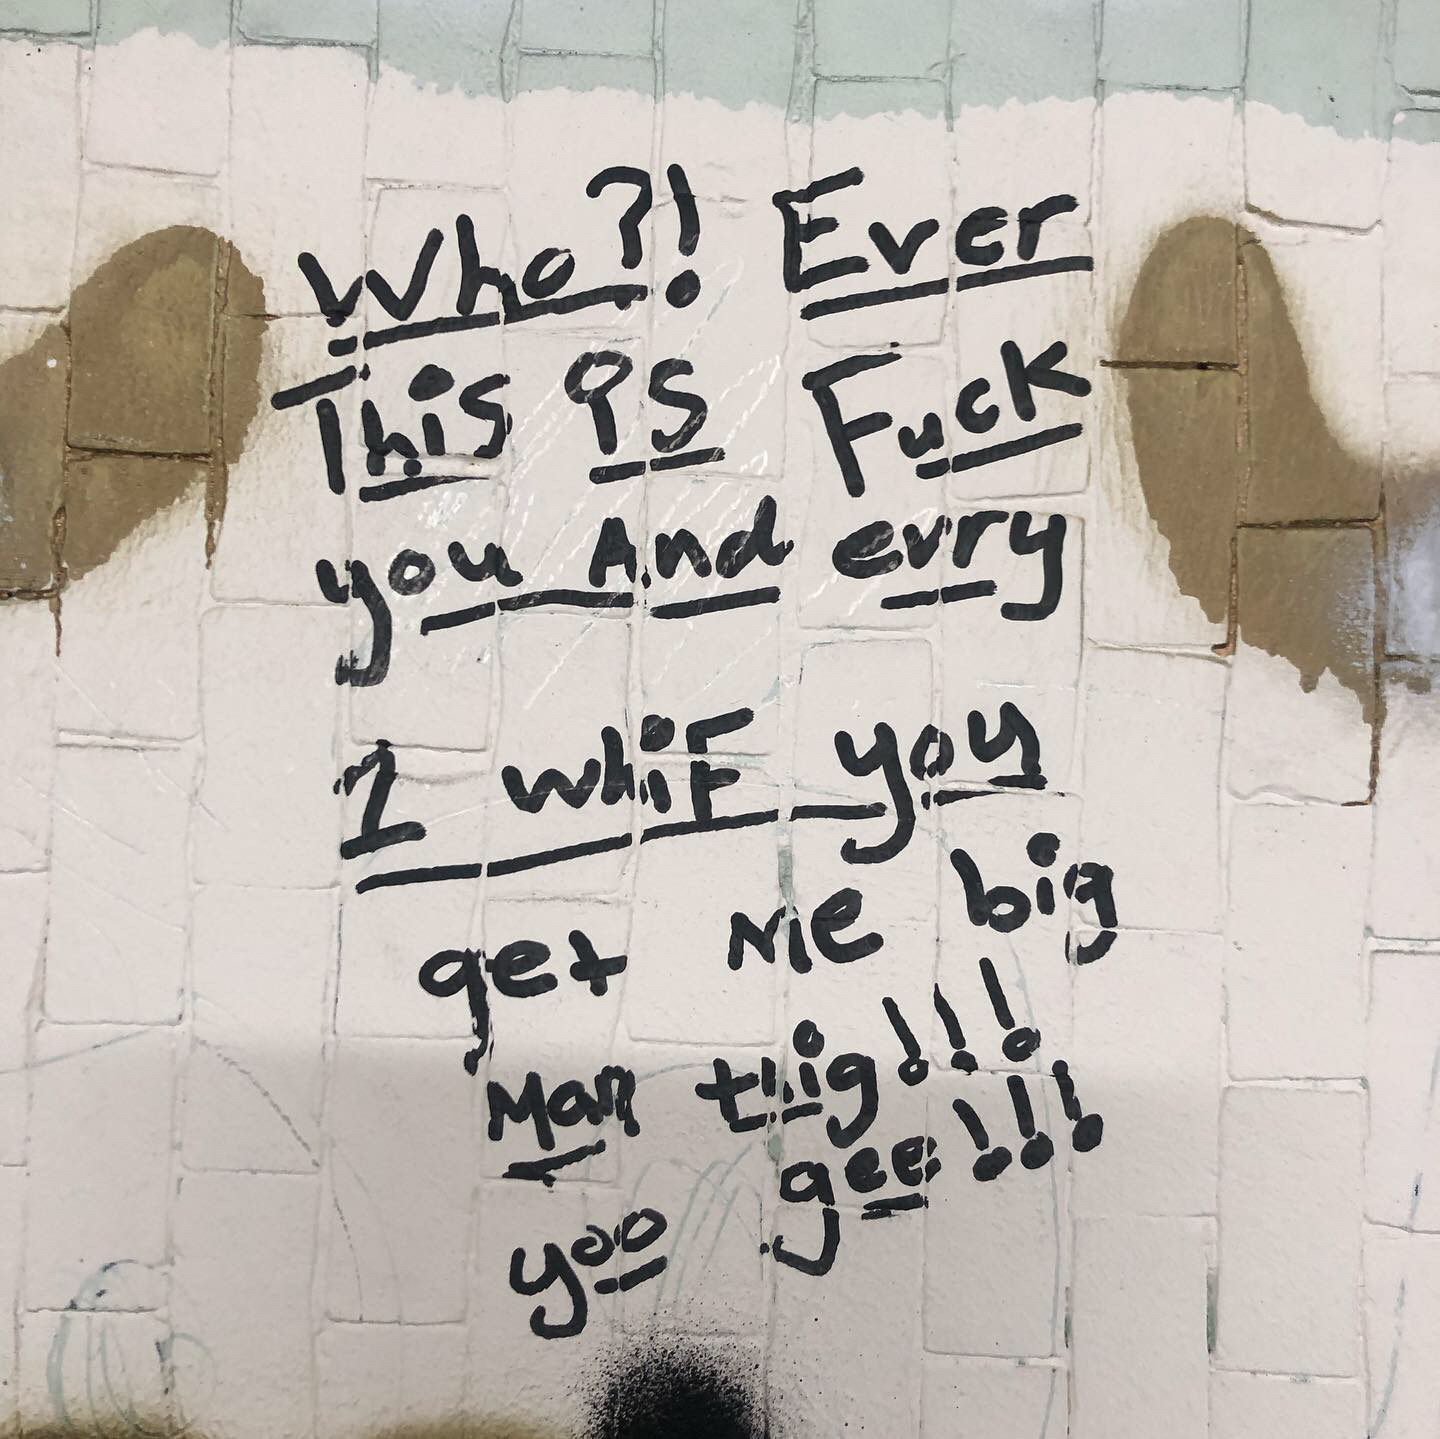 Who?! Ever
This is Fuck
you And evry
1 whiF you
get Me big
Man thig!!!
yoo gee!!!